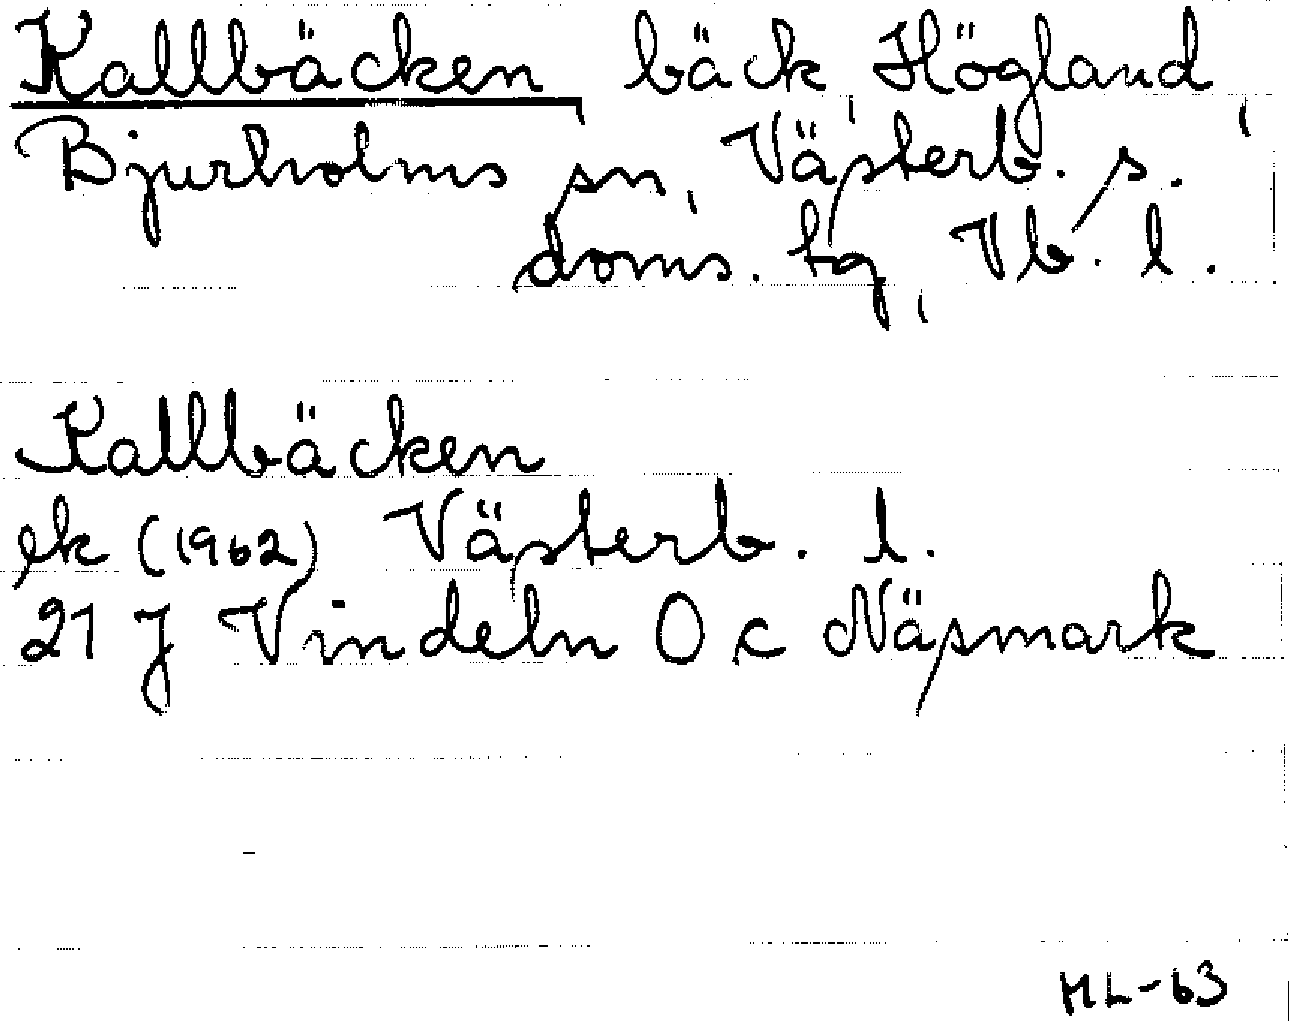 Kallbäcken, bäck, Högland,
Bjurholms sn, Västerb. s.
doms. tg, Vb. l.
Kallbäcken
ek (1962) Västerb. l.
21 J Vindeln 0 c Näsmark
ML-63